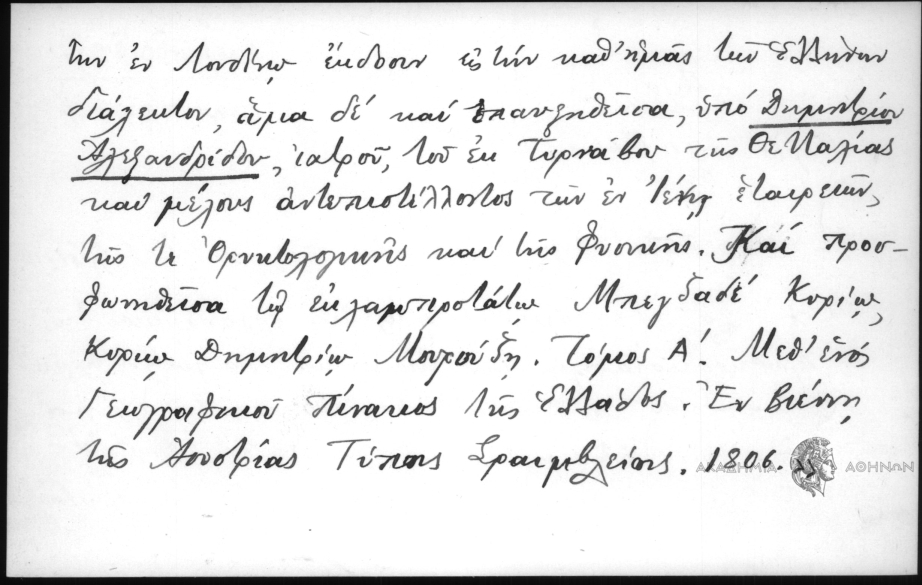 τὴν ἐν Λονδίνῳ ἔκδοσιν εἰς τὴν καθ' ἡμᾶς τῶν Ἑλλήνων
διάλεκτον, ἅμα δέ καί ἐπανξηθεῖσα, ὑπό Δημητρίου
Ἀλεξανδρίδου, ἰατροῦ, τοῦ ἐκ Τυρνάβου τῆς Θετταλίας
καί μέλους ἀντεπιστέλλοντος τῶν ἐν Ἰένῃ ἑταιρειῶν,
τῆς τε Ὀρυκτολογικῆς καί τῆς φυσικῆς. Καί προσ-
φωνηθεῖσα τῷ ἐκλαμπροτάτῳ Μπεγζαδέ Κυρίῳ,
Κυρίῳ Δημητρίῳ Μουρούζῃ. Τόμος Α΄. Μεθ' ἑνός
Γεωγραφικοῦ Πίνακος τῆς Ἑλλάδος. Ἐν Βιέννῃ
τῆς Αουστρίας Τύποις Σραιμβλείοις. 1806. »
ΑΚΑΔΗΜΙΑ ΑΘΗΝΩΝ